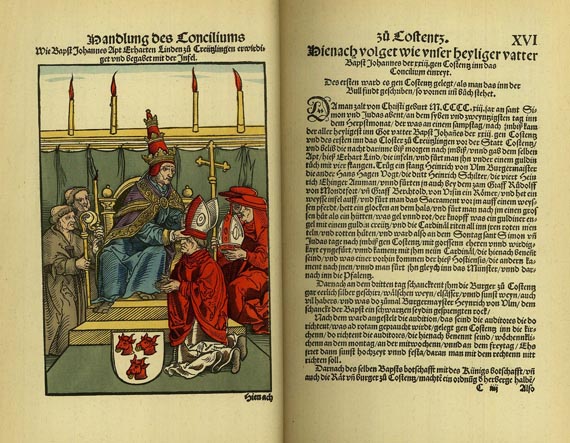 Handlung des Conciliums
Wie Bapst Johannes Apt Erharten Linden zů Creützlingen erwiedi-
get vnd begabet mit der Infel.
Hienach
zů Costentz. XVI
Hienach volget wie vnser heyliger vatter
Bapst Johannes der xxiij. gen Costentz inn das
Concilium einreyt.
Des ersten ward es gen Costentz gelegt/als man das inn der
Bull findt geschriben/so vornen im bůch stehet.
DA man zalt von Christi geburt M.CCCC.xiiij. jar an sant Si-
mon vnd Judas abent/an dem syben vnd zweyntzigsten tag inn
dem Herpstmonat/der was an einem sampstag/nach jmbiß kam
der aller heyligest inn Got vatter Bapst Johañes der xxiij. gen Costentz
vnd des ersten inn das Closter zů Creützlingen vor der Statt Costentz/
vnd belib die nacht darinne biß morgen nach jmbiß/vnnd gab dem selben
Apt/hieß Erhart Lind/die infeln/vnd fürt man jhn vnder einem guldin
tůch mit vier stangen. Trůg ein stang Heinrich von Vlm Burgermeister
die ander Hans Hagen Vogt/die dritt Heinrich Schilter/die vierd Hein
rich Ehinger Amman/vnnd fürten jn auch bey dem zam Graff Růdolff
von Mondtfort vñ Graff Berhtolt von Vrsin ein Römer/vnd het ein
weysse infel auff/vnd fürt man das Sacrament vor jm auff einem weys-
sen pferdt/hett ein glocken an dem hals/vnd fürt man nach jm einen gros
sen hůt als ein hütten/was gel vnnd rot/der knopff was ein guldiner en-
gel mit einem guldin creütz/vnd die Cardinäl riten all inn jren roten men
teln/vnnd rotten hůten/vnd ward also an dem Sontag sant Simon vñ
Judas tage nach jmbiß gen Costentz mit grossen eheren vnnd wirdig-
kayt eyngefürt/vnnd kament mit jhm neün Cardinäl/die hienach beneñt
seind/vnd was einer vorhin kommen der hieß Hostiensis/die andern ka-
ment nach jnen/vnnd fürt man jhn gleych inn das Münster/vnnd dar-
nach inn die Pfalentz.
Darnach an dem dritten tag schanckent jhm die Burger zů Costentz
gar eerlich silber geschirr/wälschen weyn/elsässer/vnnd sunst weyn/auch
vil habers/vnd was do zůmal Burgermayster Heynrich von Vlm/der
schanckt der Bapst ein schwartzen seydin gespengten rock/
Nach dem ward angestelt die audition/das seind die auditores die do
richtent/was ad rotam gepraucht wirdt/gelegt gen Costentz inn die kir-
chen/do richtent die auditores/die hienach benennt seind/wöchennkli-
chenn an dem montag/an der mitwochenn/vnnd an dem freytag/Ehs
jrret dann sunst hochzeyt vnnd festa/daran man mit dem rechtenn nitt
richten solt.
Darnach des selben Bapsts botschafft mit des Künigs botschafft/vñ
auch die Rät vñ burger zů Costentz/machtẽ ein ordnũg d herberge halbẽ/
C iiij Also